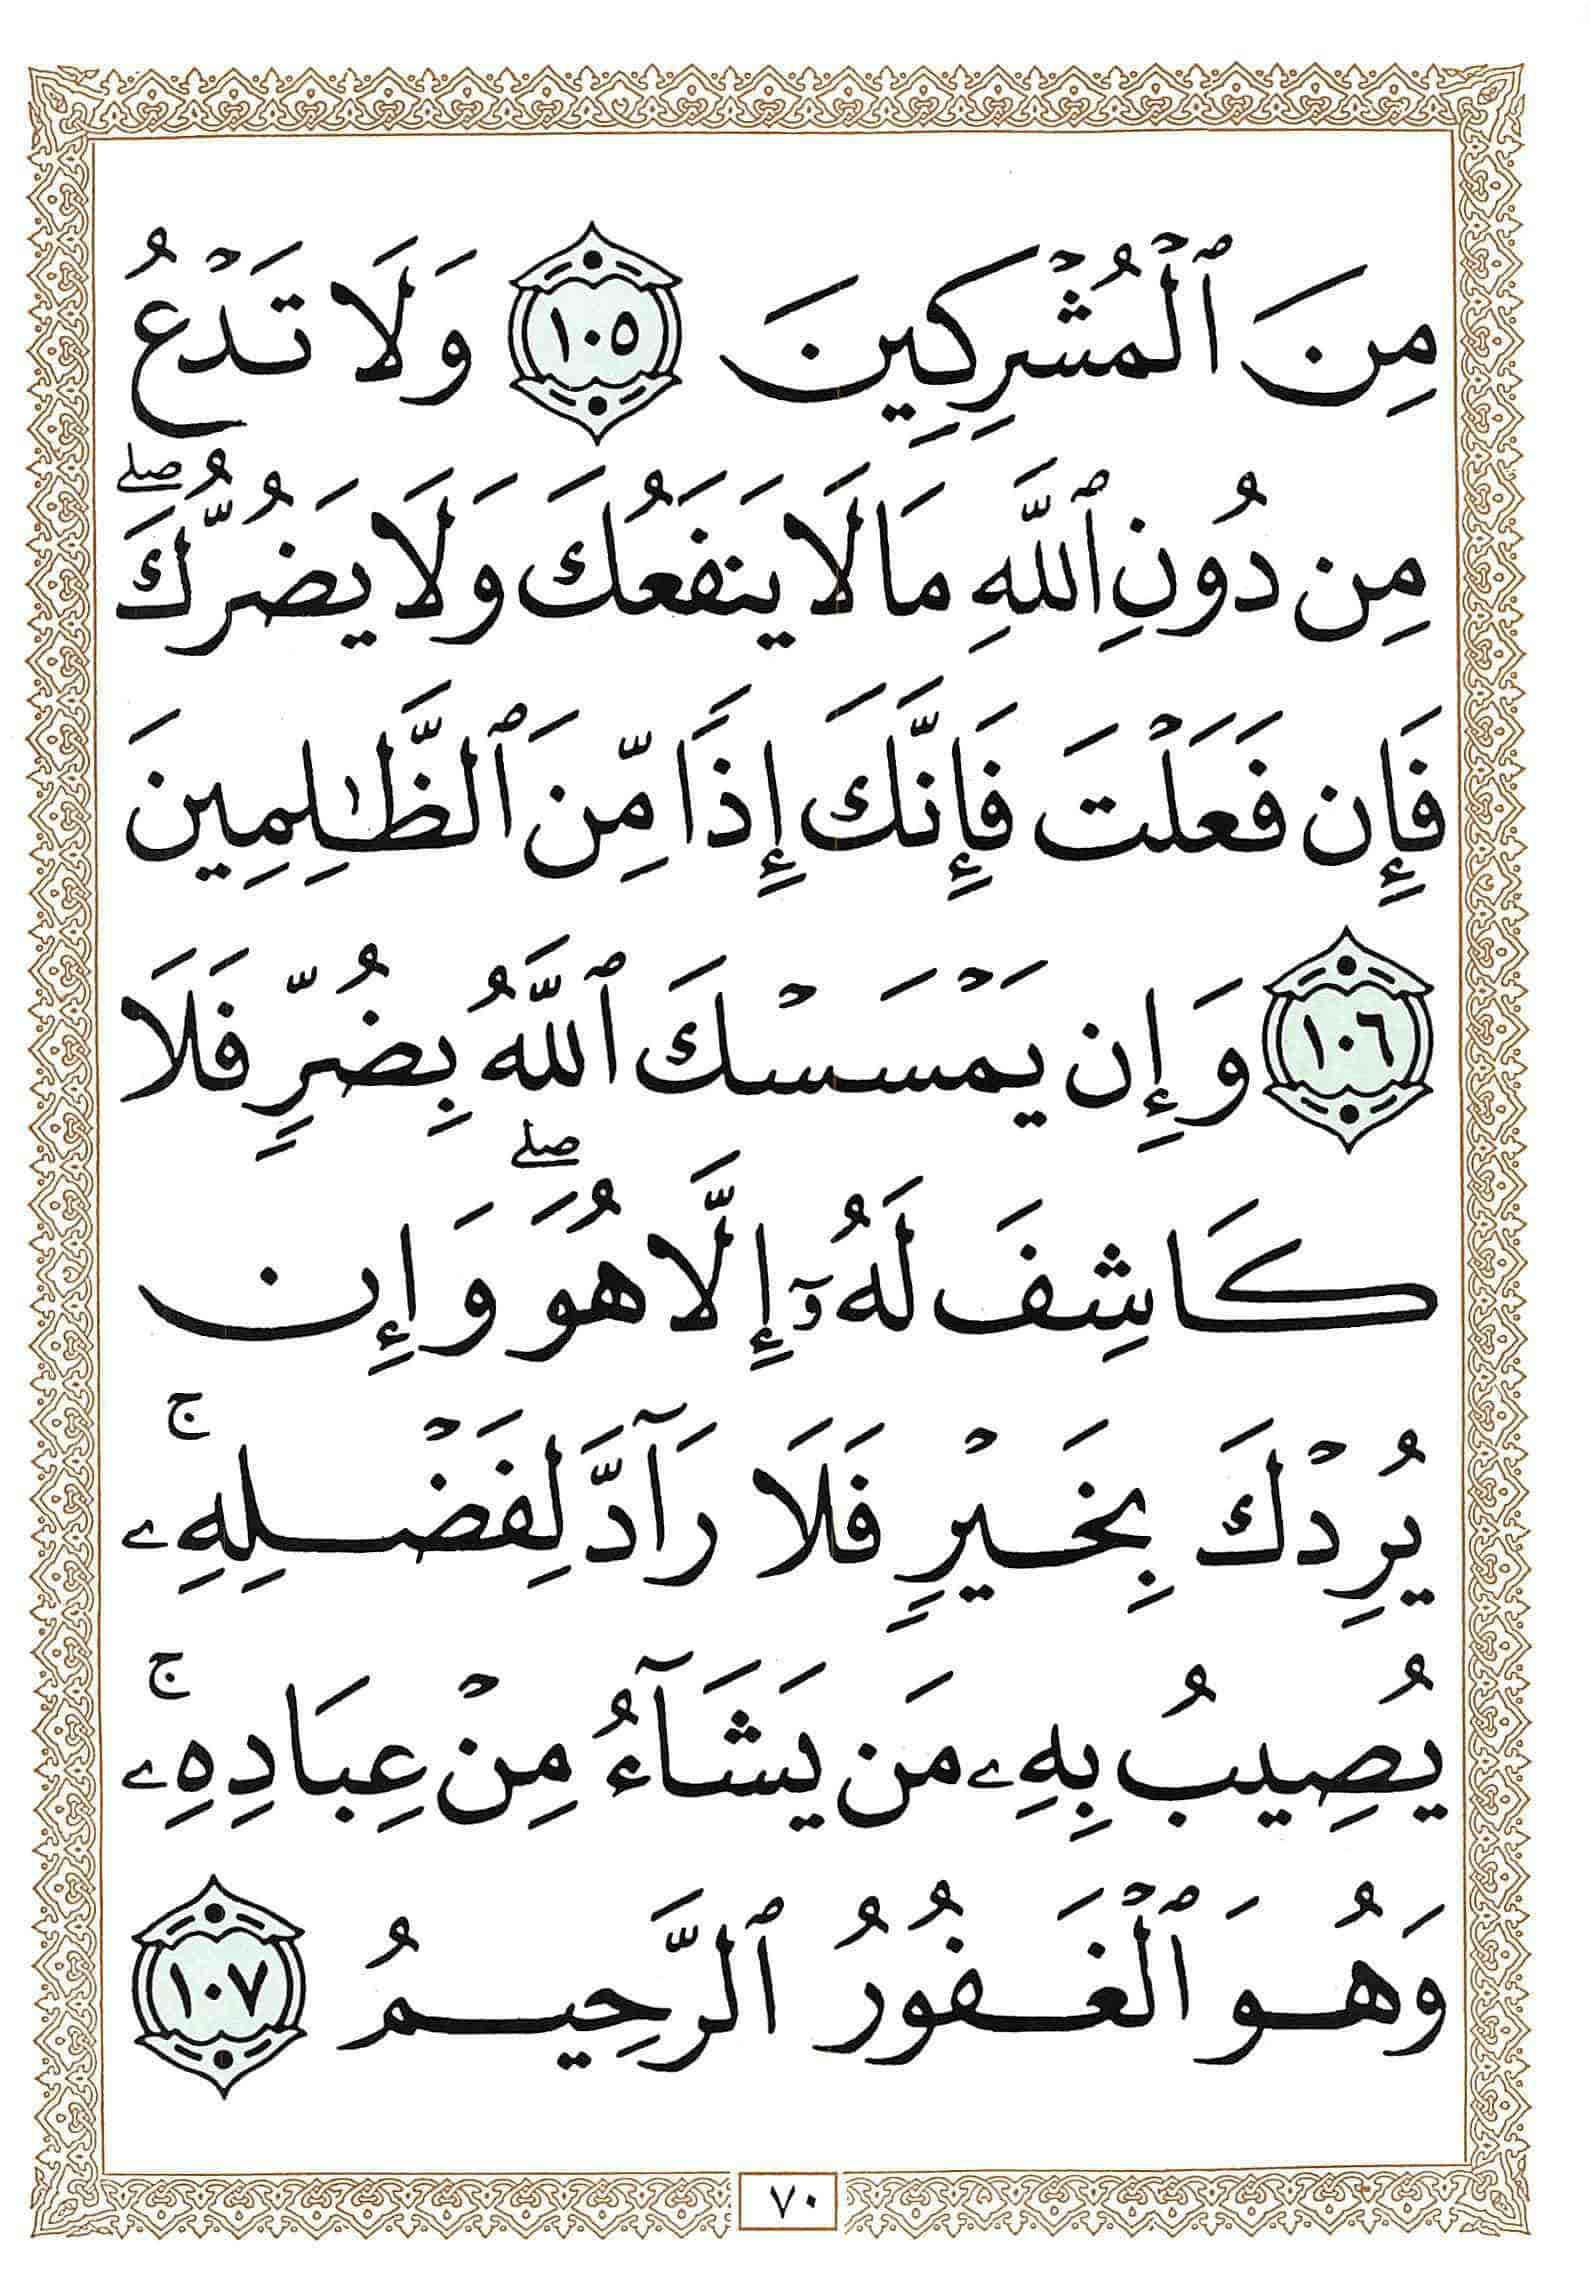 مِنَ ٱلْمُشْرِكِينَ ١٠٥ وَلَا تَدْعُ
مِن دُونِ ٱللَّهِ مَا لَا يَنفَعُكَ وَلَا يَضُرُّكَ ۖ
فَإِن فَعَلْتَ فَإِنَّكَ إِذًا مِّنَ ٱلظَّـٰلِمِينَ
١٠٦ وَإِن يَمْسَسْكَ ٱللَّهُ بِضُرٍّ فَلَا
كَاشِفَ لَهُۥٓ إِلَّا هُوَ ۖ وَإِن
يُرِدْكَ بِخَيْرٍ فَلَا رَآدَّ لِفَضْلِهِۦ ۚ
يُصِيبُ بِهِۦ مَن يَشَآءُ مِنْ عِبَادِهِۦ ۚ
وَهُوَ ٱلْغَفُورُ ٱلرَّحِيمُ ١٠٧
٧٠